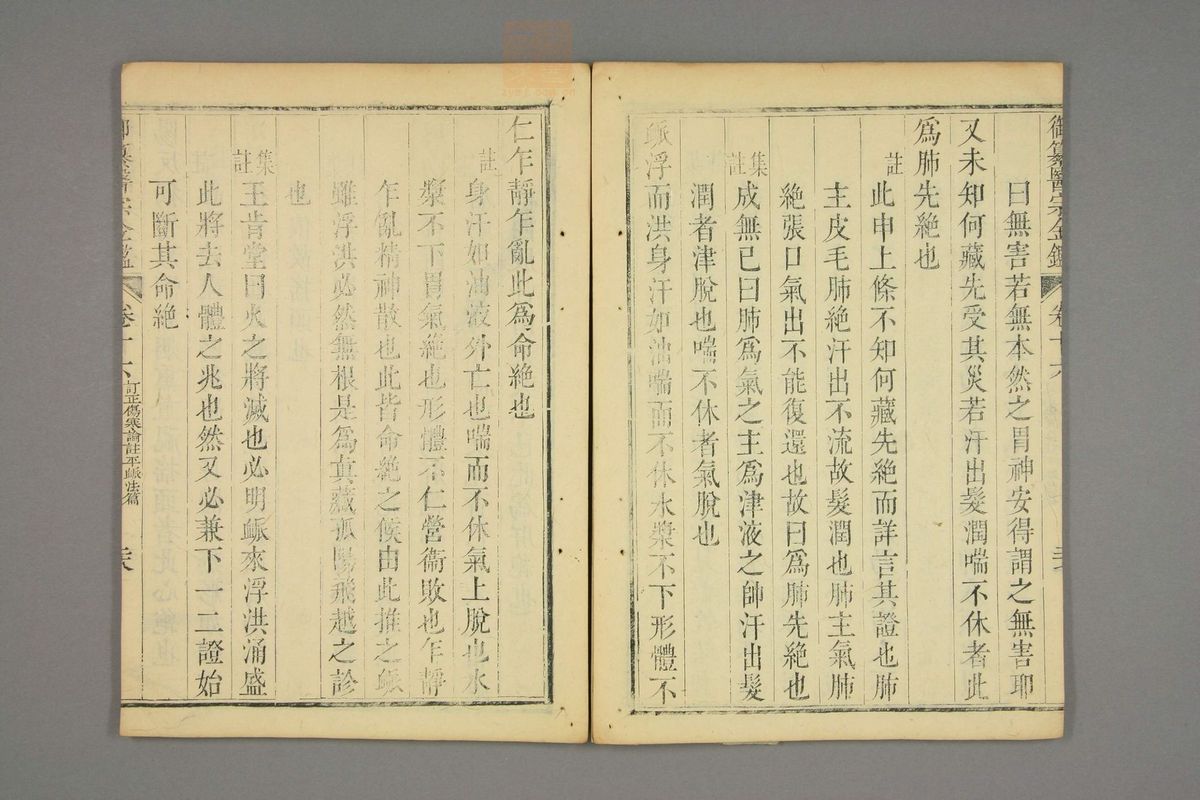 御纂醫宗金鑑
卷十六
曰無害若無本然之胃神安得謂之無害耶
又未知何藏先受其災若汗出髮潤喘不休者此
爲肺先絶也
註
此申上條不知何藏先絶而詳言其證也肺
主皮毛肺絶汗出不流故髮潤也肺主氣肺
絶張口氣出不能復還也故曰爲肺先絶也
集註
成無已曰肺爲氣之主爲津液之帥汗出髮
潤者津脫也喘不休者氣脫也
脈浮而洪身汗如油喘而不休水漿不下形體不
仁乍靜乍亂此爲命絶也
註
身汗如油液外亡也喘而不休氣上脫也水
漿不下胃氣絶也形體不仁營衞敗也乍靜
乍亂精神散也此皆命絶之候由此推之脈
雖浮洪必然無根是爲真藏孤陽飛越之診
也
集註
王肯堂曰火之將滅也必明脈來浮洪涌盛
此將去人體之兆也然又必兼下一二證始
可斷其命絶
御纂醫宗金鑑
卷十六
訂正傷寒論註平脈法篇